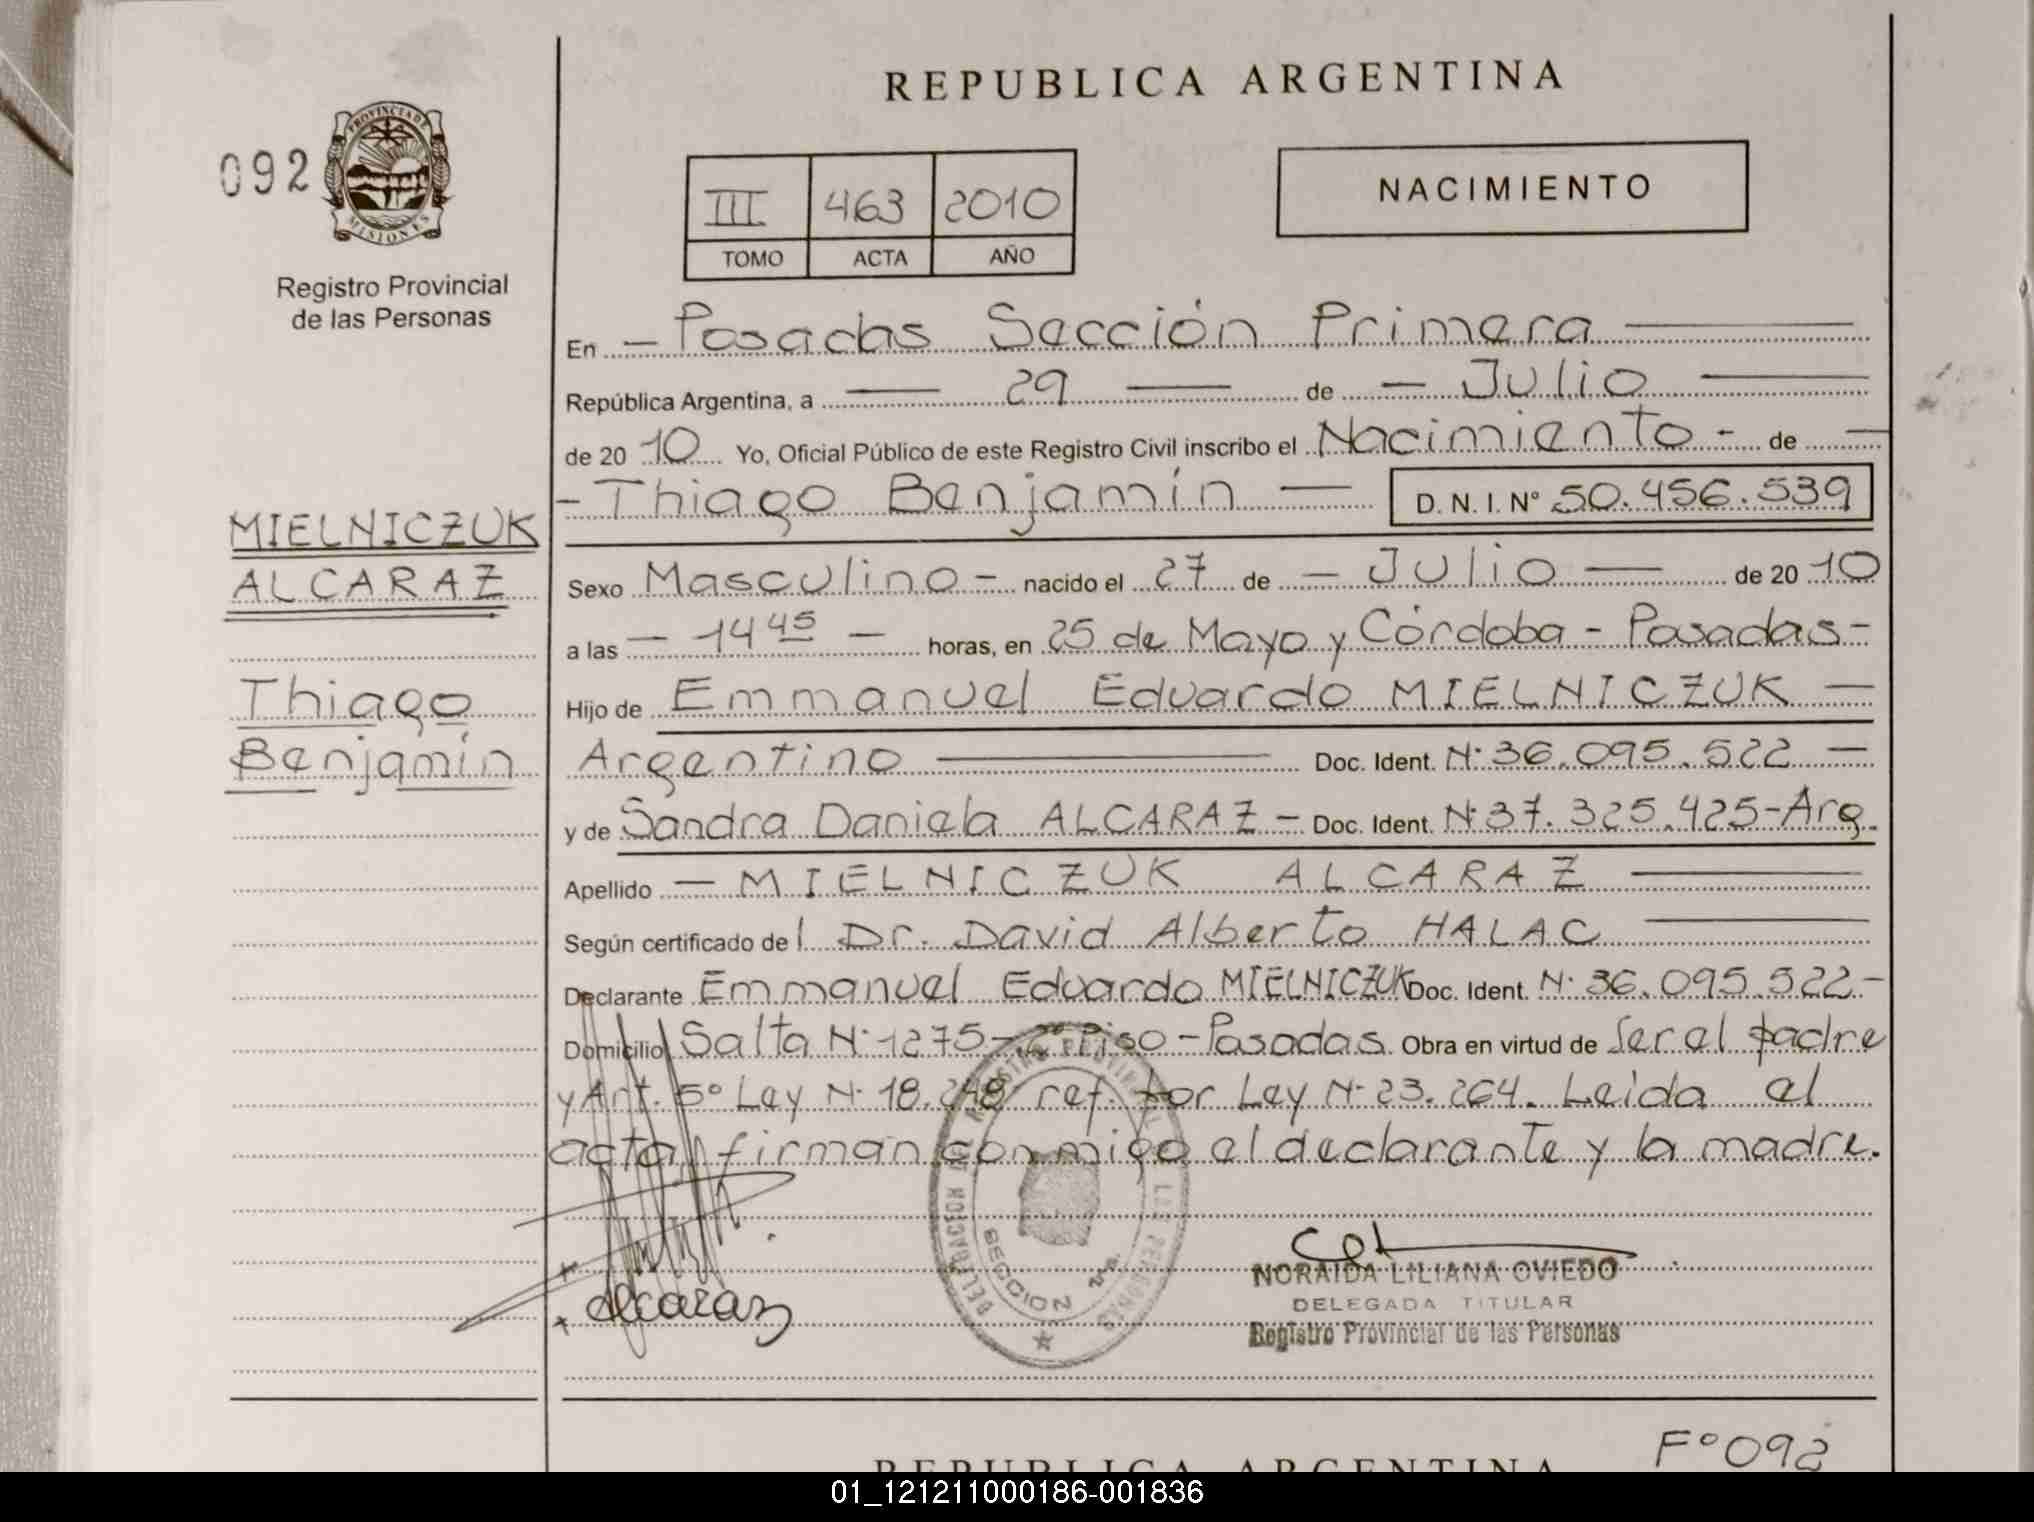 REPUBLICA ARGENTINA
092
PROVINCIA DE
MISIONES
Registro Provincial
de las Personas
III 463 2010
TOMO ACTA AÑO
NACIMIENTO
En - Posadas Sección Primera
República Argentina, a 29 de - Julio
de 2010 Yo, Oficial Público de este Registro Civil inscribo el Nacimiento - de -
- Thiago Benjamín - D. N. I. Nº 50.456.539
MIELNICZUK
ALCARAZ
Thiago
Benjamín
Sexo Masculino - nacido el 27 de - Julio - de 2010
a las - 14 45 - horas, en 25 de Mayo y Córdoba - Posadas -
Hijo de Emmanuel Eduardo MIELNICZUK -
Argentino Doc. Ident. Nº 36.095.522 -
y de Sandra Daniela ALCARAZ - Doc. Ident. Nº 37.325.425-Arg.
Apellido - MIELNICZUK ALCARAZ
Según certificado del Dr. David Alberto HALAC
Declarante Emmanuel Eduardo MIELNICZUK Doc. Ident. Nº 36.095.522-
Domicilio Salta Nº 1275 - 2º Piso - Posadas. Obra en virtud de Ser el padre
y Art. 5º Ley Nº 18.248 ref. por Ley Nº 23.264. Leida el
acta, firman conmigo el declarante y la madre.
Alcaraz
SECCION 1ra.
NORAIDA LILIANA OVIEDO
DELEGADA TITULAR
Registro Provincial de las Personas
Fº 092
REPUBLICA ARGENTINA
01_121211000186-001836